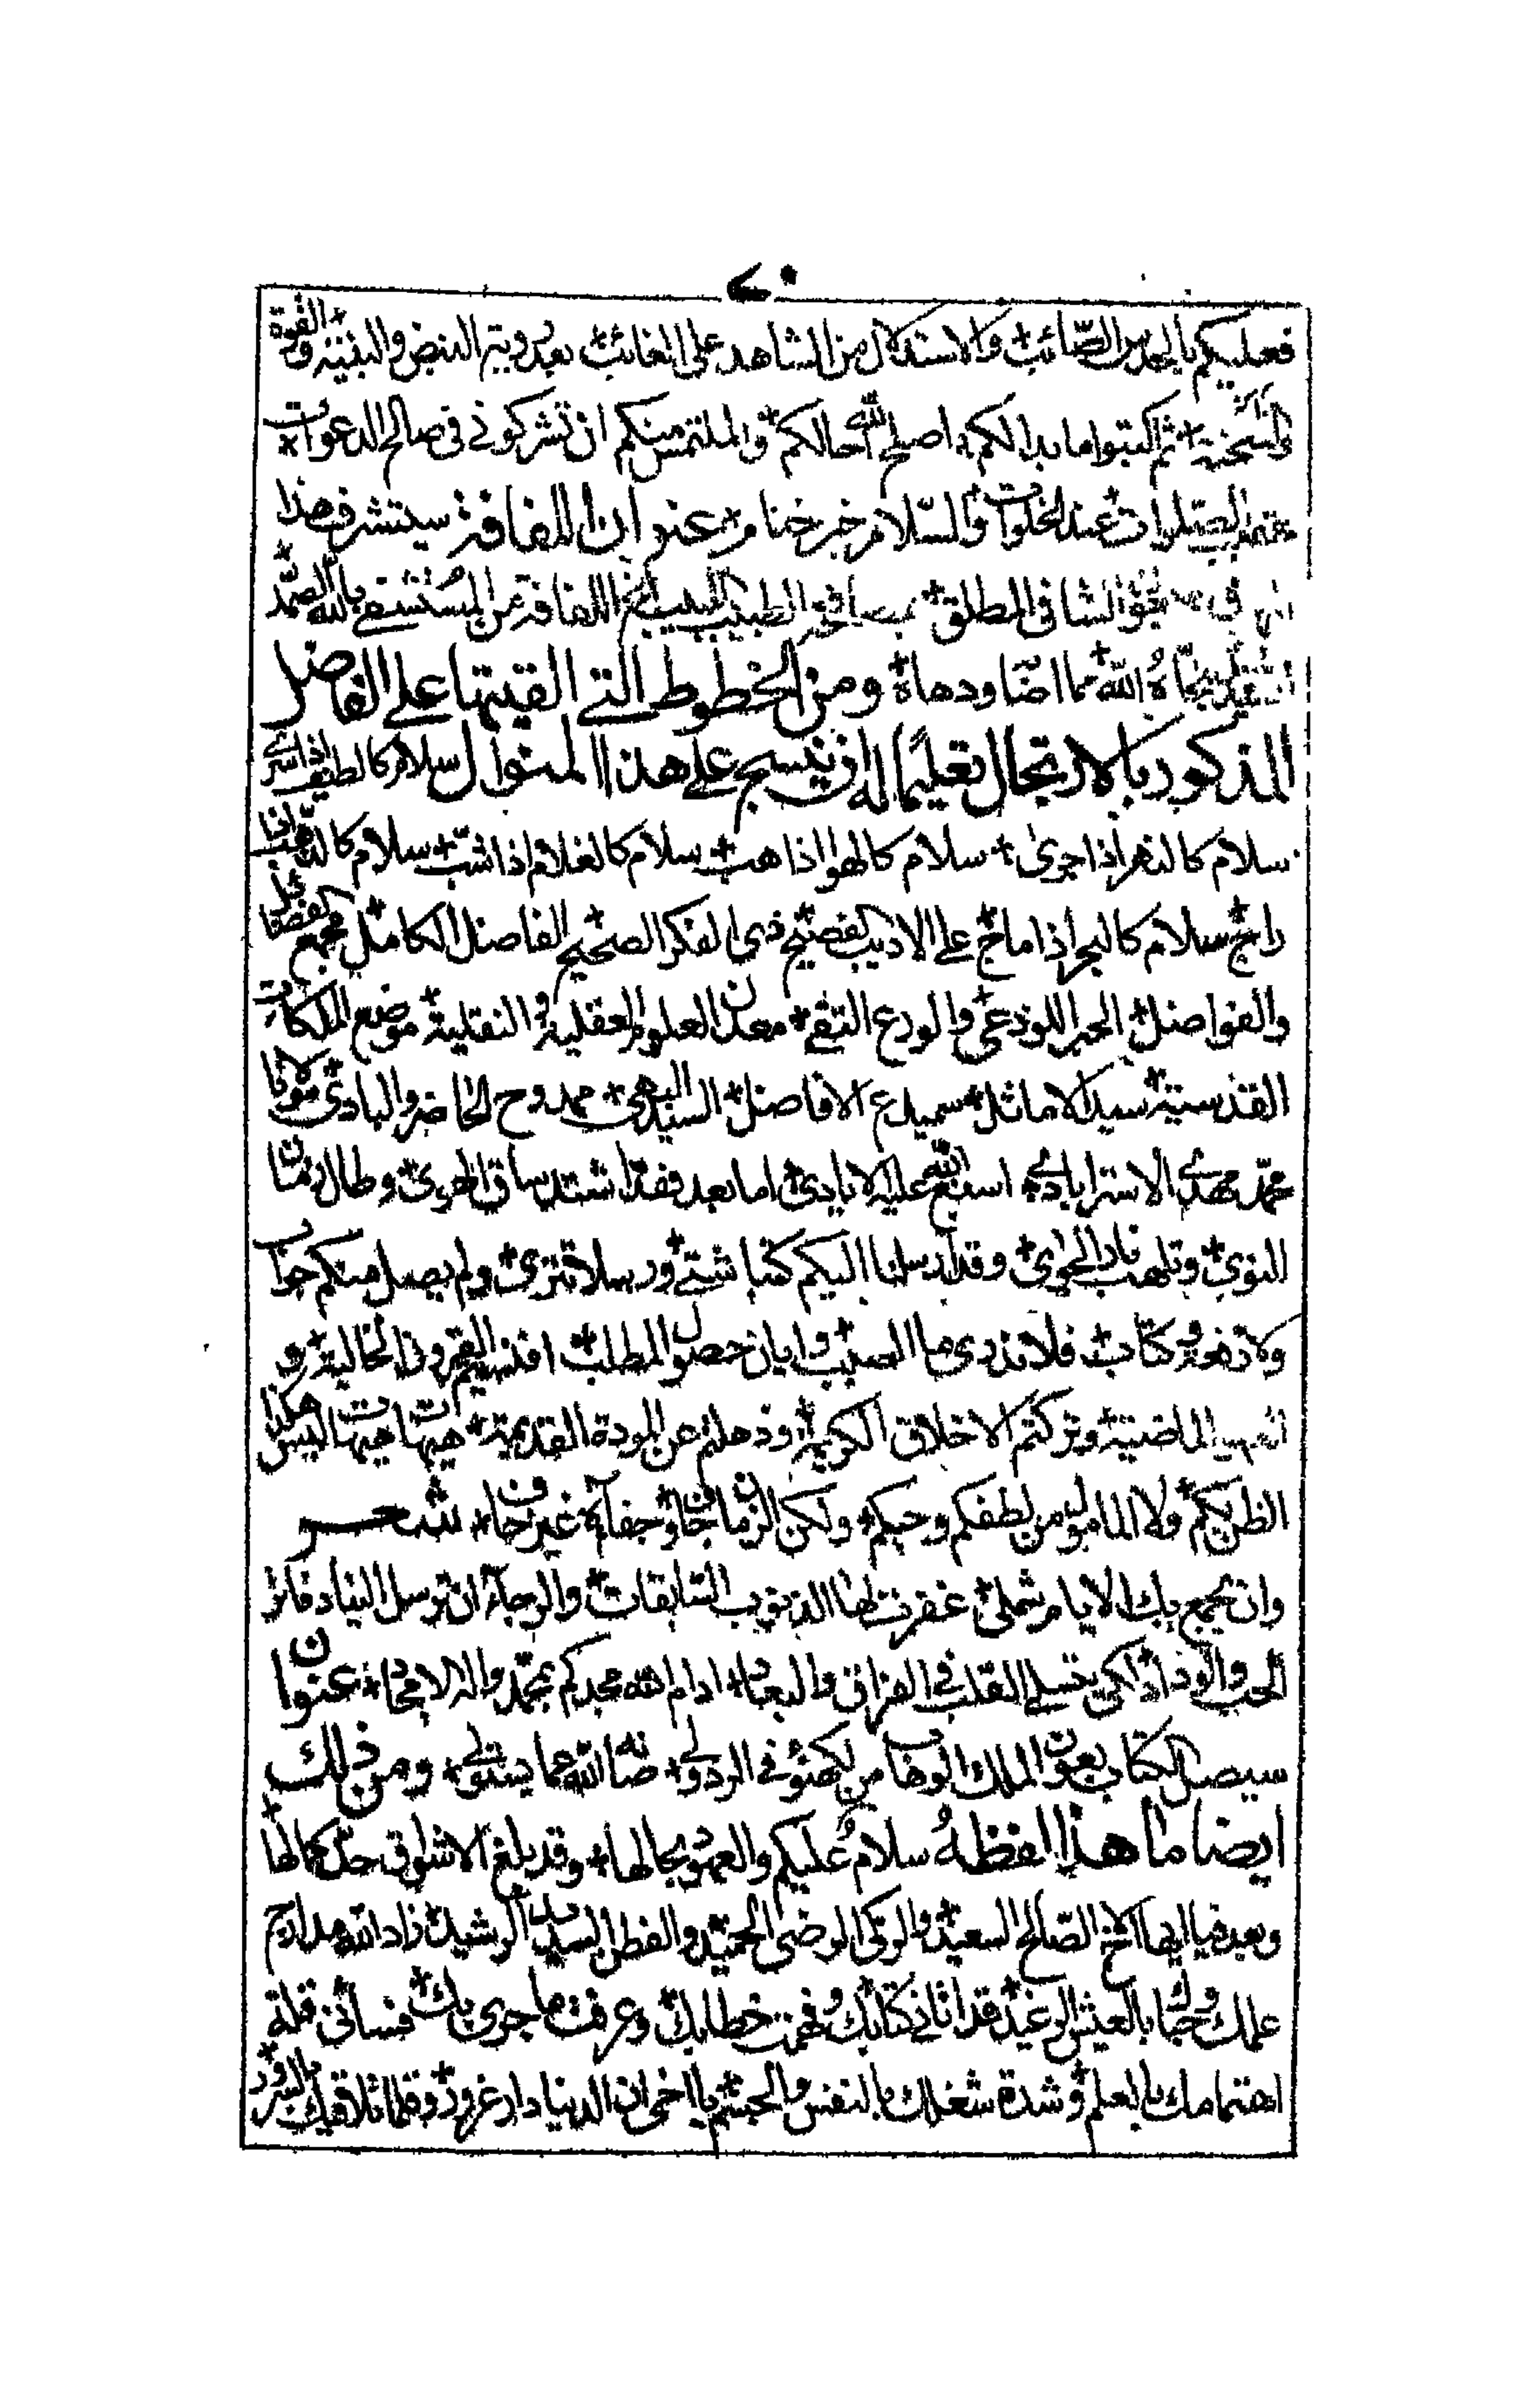 ٤٠
فعليكم بالحدس الصائب + والاستدلال من الشاهد على الغائب + بعد روية النبض والبنية والقوة +
والسحنة + ثم اكتبوا ما بدا لكم + اصلح الله حالكم + والملتمس منكم ان تشركوني في صالح الدعوات +
الصلوات عند الخلوات والسلام خير ختام + عنوان اللفافة سيتشرف هذا
في الشافي المطلق + الطبيب اللبيب اللفافة من المستشفي بالله الصمد +
نجاه الله مما اضناه ودهاه + ومن الخطوط التي القيتها على الفاضل
المذكور بالارتجال تعليما له ان ينسج على هذا المنوال سلام كالطيف اذا سرى
سلام كالنهر اذا جرى + سلام كالهوا اذا هب + سلام كالغلام اذا شب + سلام كالذهب اذا
راج + سلام كالبحر اذا ماج + على الاديب الفصيح + ذي الفكر الصحيح + الفاضل الكامل + مجمع الفضائل
والفواضل + الحبر اللوذعي + والورع التقي + معدن العلوم العقلية + والنقلية + موضع الملكات
القدسية + سيد الاماثل + سميدع الافاضل + السيد البهي + ممدوح الحاضر والبادي + مولانا
محمد مهدي الاسترابادي + اسبغ الله عليه الايادي + اما بعد فقد اشتد ساق الهوى + وطال زمان
النوى + وتلهب نار الجوى + وقد ارسلنا اليكم كتبا شتى + ورسلا تترى + ولم يصل منكم جواب
ولا ظهور كتاب + فلا ندري ما السبب + وايان حصول المطلب + افنسيتم القرون الخالية + و
العهود الماضية + وتركتم الاخلاق الكريمة + وذهلتم عن المودة القديمة + هيهات هيهات ليس هكذا
الظن بكم + ولا المامول من لطفكم وحبكم + ولكن الزمان جاف + وجفاؤه غير خاف + شعر
وان تجمع بك الايام شملي + غفرت لها الذنوب السابقات + والرجاء ان ترسل الينا دفاتر
الحب والوداد + لكي يتسلى القلب في الفراق والبعاد + ادام الله مجدكم بمحمد واله الامجاد + عنوان
سيصل الكتاب بعون الملك الوهاب من لكهنؤ في الردولي + صانه الله عما يبتلى + ومن ذلك
ايضا ما هذا لفظه سلام عليكم والعهود بحالها + وقد بلغ الاشواق حد كمالها +
وبعد فيا ايها الاخ الصالح السعيد + والزكي الرضي الحميد + والفطن السديد الرشيد + زاد الله مدارج
علمك وحباك بالعيش الرغيد + قد اتاني كتابك + وفهمت خطابك + وعرفت ما جرى بك + فساءني قلة
اهتمامك بالعلم + وشدة شغلك بالنفس والجسم + يا اخي ان الدنيا دار غرور + وقلما تلاقيك بالسرور +